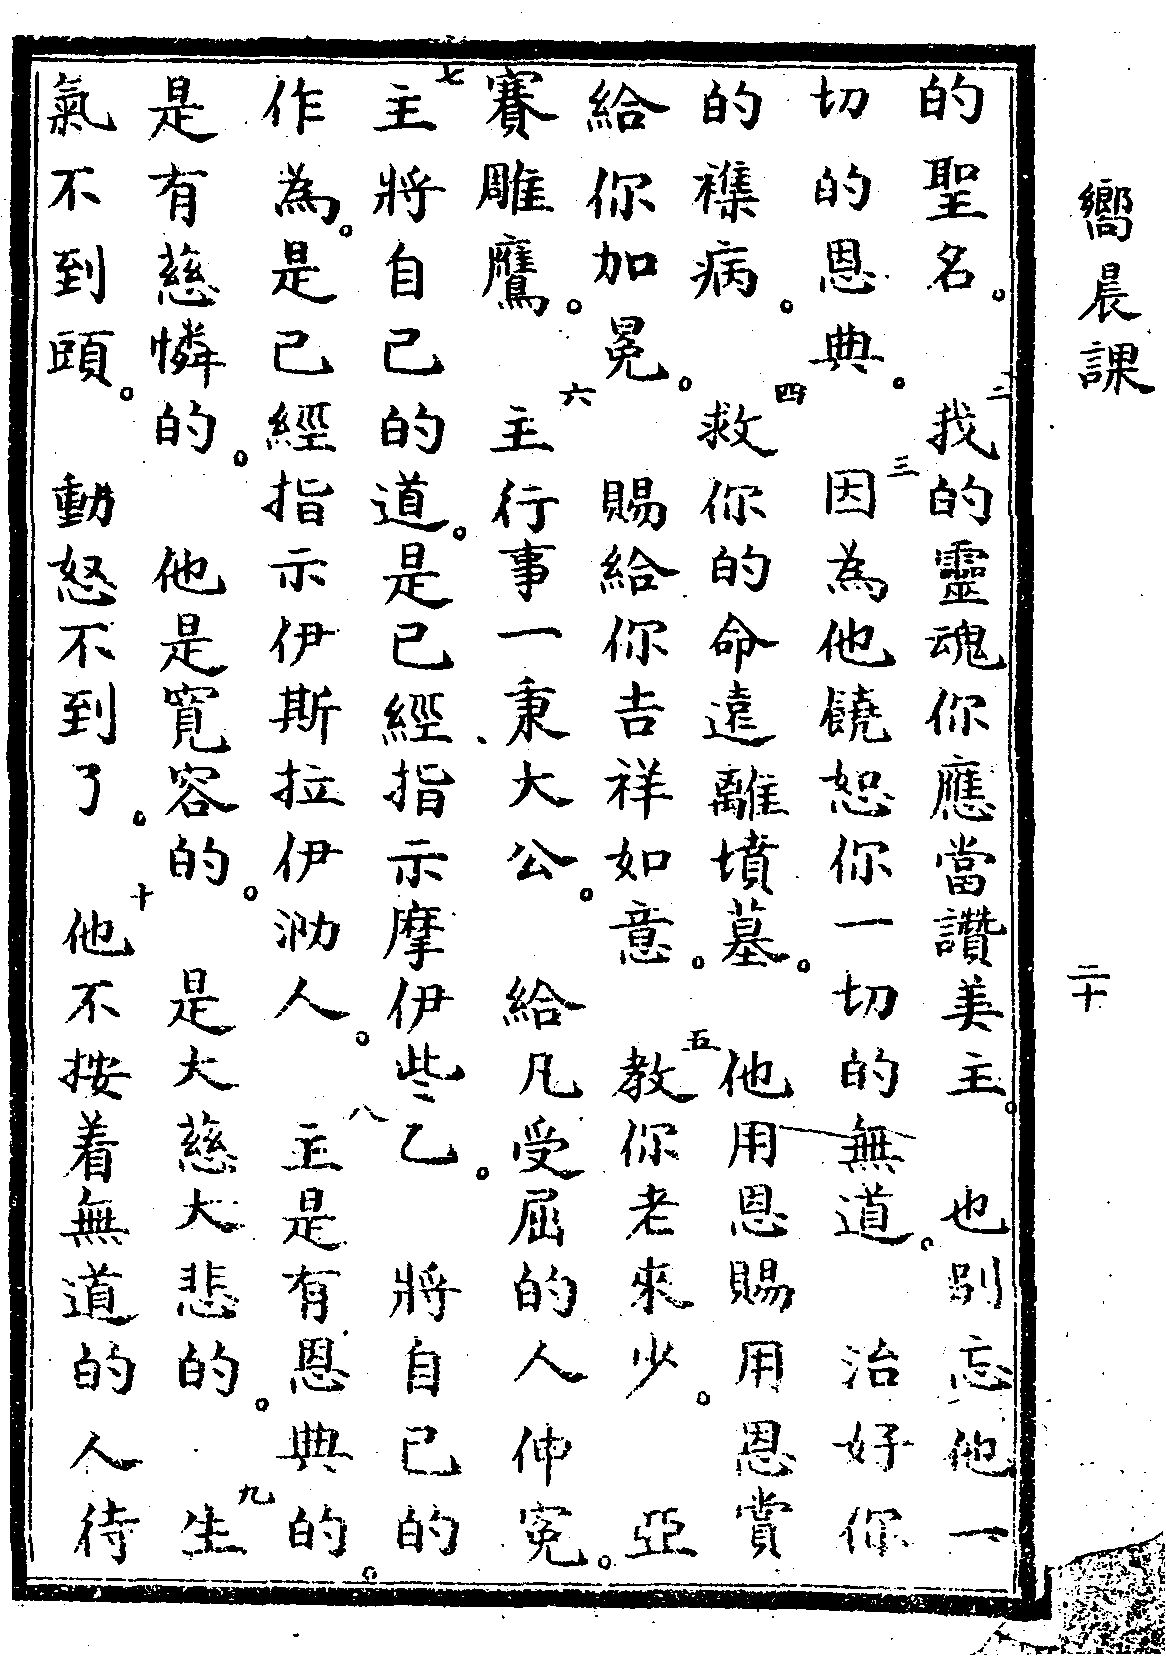 嚮晨課
二十
的聖名。二我的靈魂你應當讚美主。也别忘他一
切的恩典。三因為他饒恕你一切的無道。治好你
的襍病。四救你的命遠離墳墓。他用恩賜用恩賞
給你加冕。賜給你吉祥如意。五教你老來少。亞
賽雕鷹。六主行事一秉大公。給凡受屈的人伸冤。
七主將自己的道。是已經指示摩伊些乙。將自己的
作為。是已經指示伊斯拉伊泐人。八主是有恩典的。
是有慈憐的。他是寬容的。是大慈大悲的。九生
氣不到頭。動怒不到了。十他不按着無道的人待